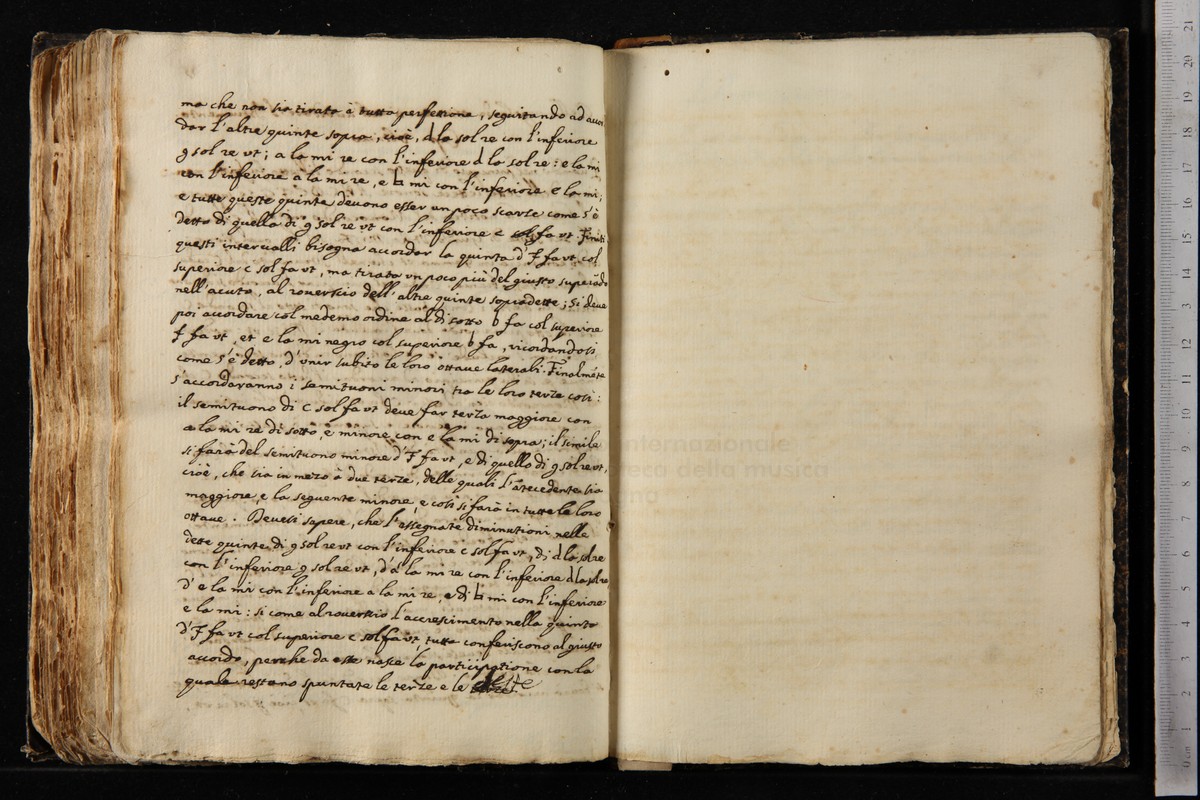 ma che non sia tirata à tutta perfettione, seguitando ad accor
dar l'altre quinte sopra, cioè, d la sol re con l'inferiore
g sol re ut; a la mi re con l'inferiore d la sol re: e la mi
con l'inferiore a la mi re, e ♮ mi con l'inferiore e la mi;
e tutte queste quinte devono esser un poco scarse come s'è
detto di quella di g sol re ut con l'inferiore c sol fa ut. Finiti
questi intervalli bisogna accordar la quinta d'F fa ut col
superiore c sol fa ut, ma tirata un poco più del giusto superãdo
nell'acuto, al roverscio dell'altre quinte sopradette; Si deve
poi accordare col medemo ordine al di sotto b fa col superiore
F fa ut, et e la mi negro col superiore b fa, ricordandosi
come s'è detto d'unir subito le loro ottave laterali. Finalmẽte
s'accordaranno i semituoni minori tra le loro terze così:
il semituono di c sol fa ut deve far terza maggiore con
a la mi re di sotto, e minore con e la mi di sopra; il simile
si farà del semituono minore d'F fa ut, e di quello di g sol re ut,
cioè, che sia in mezo à due terze, delle quali l'ãtecedente sia
maggiore, e la seguente minore, e così si farà in tutte le loro
ottave. Devesi sapere, che l'assegnate diminutioni nelle
dette quinte di g sol re ut con l'inferiore c sol fa ut, di d la sol re
con l'inferiore g sol re ut, d'a la mi re con l'inferiore d la sol re
d'e la mi con l'inferiore a la mi re, e di ♮ mi con l'inferiore
e la mi: si come al roverscio l'accrescimento nella quinta
d'F fa ut col superiore c sol fa ut, tutte conferiscono al giusto
accordo, perche da esse nasce la participatione con la
quale restano spuntate le terze e le
internazionale
teca della musica